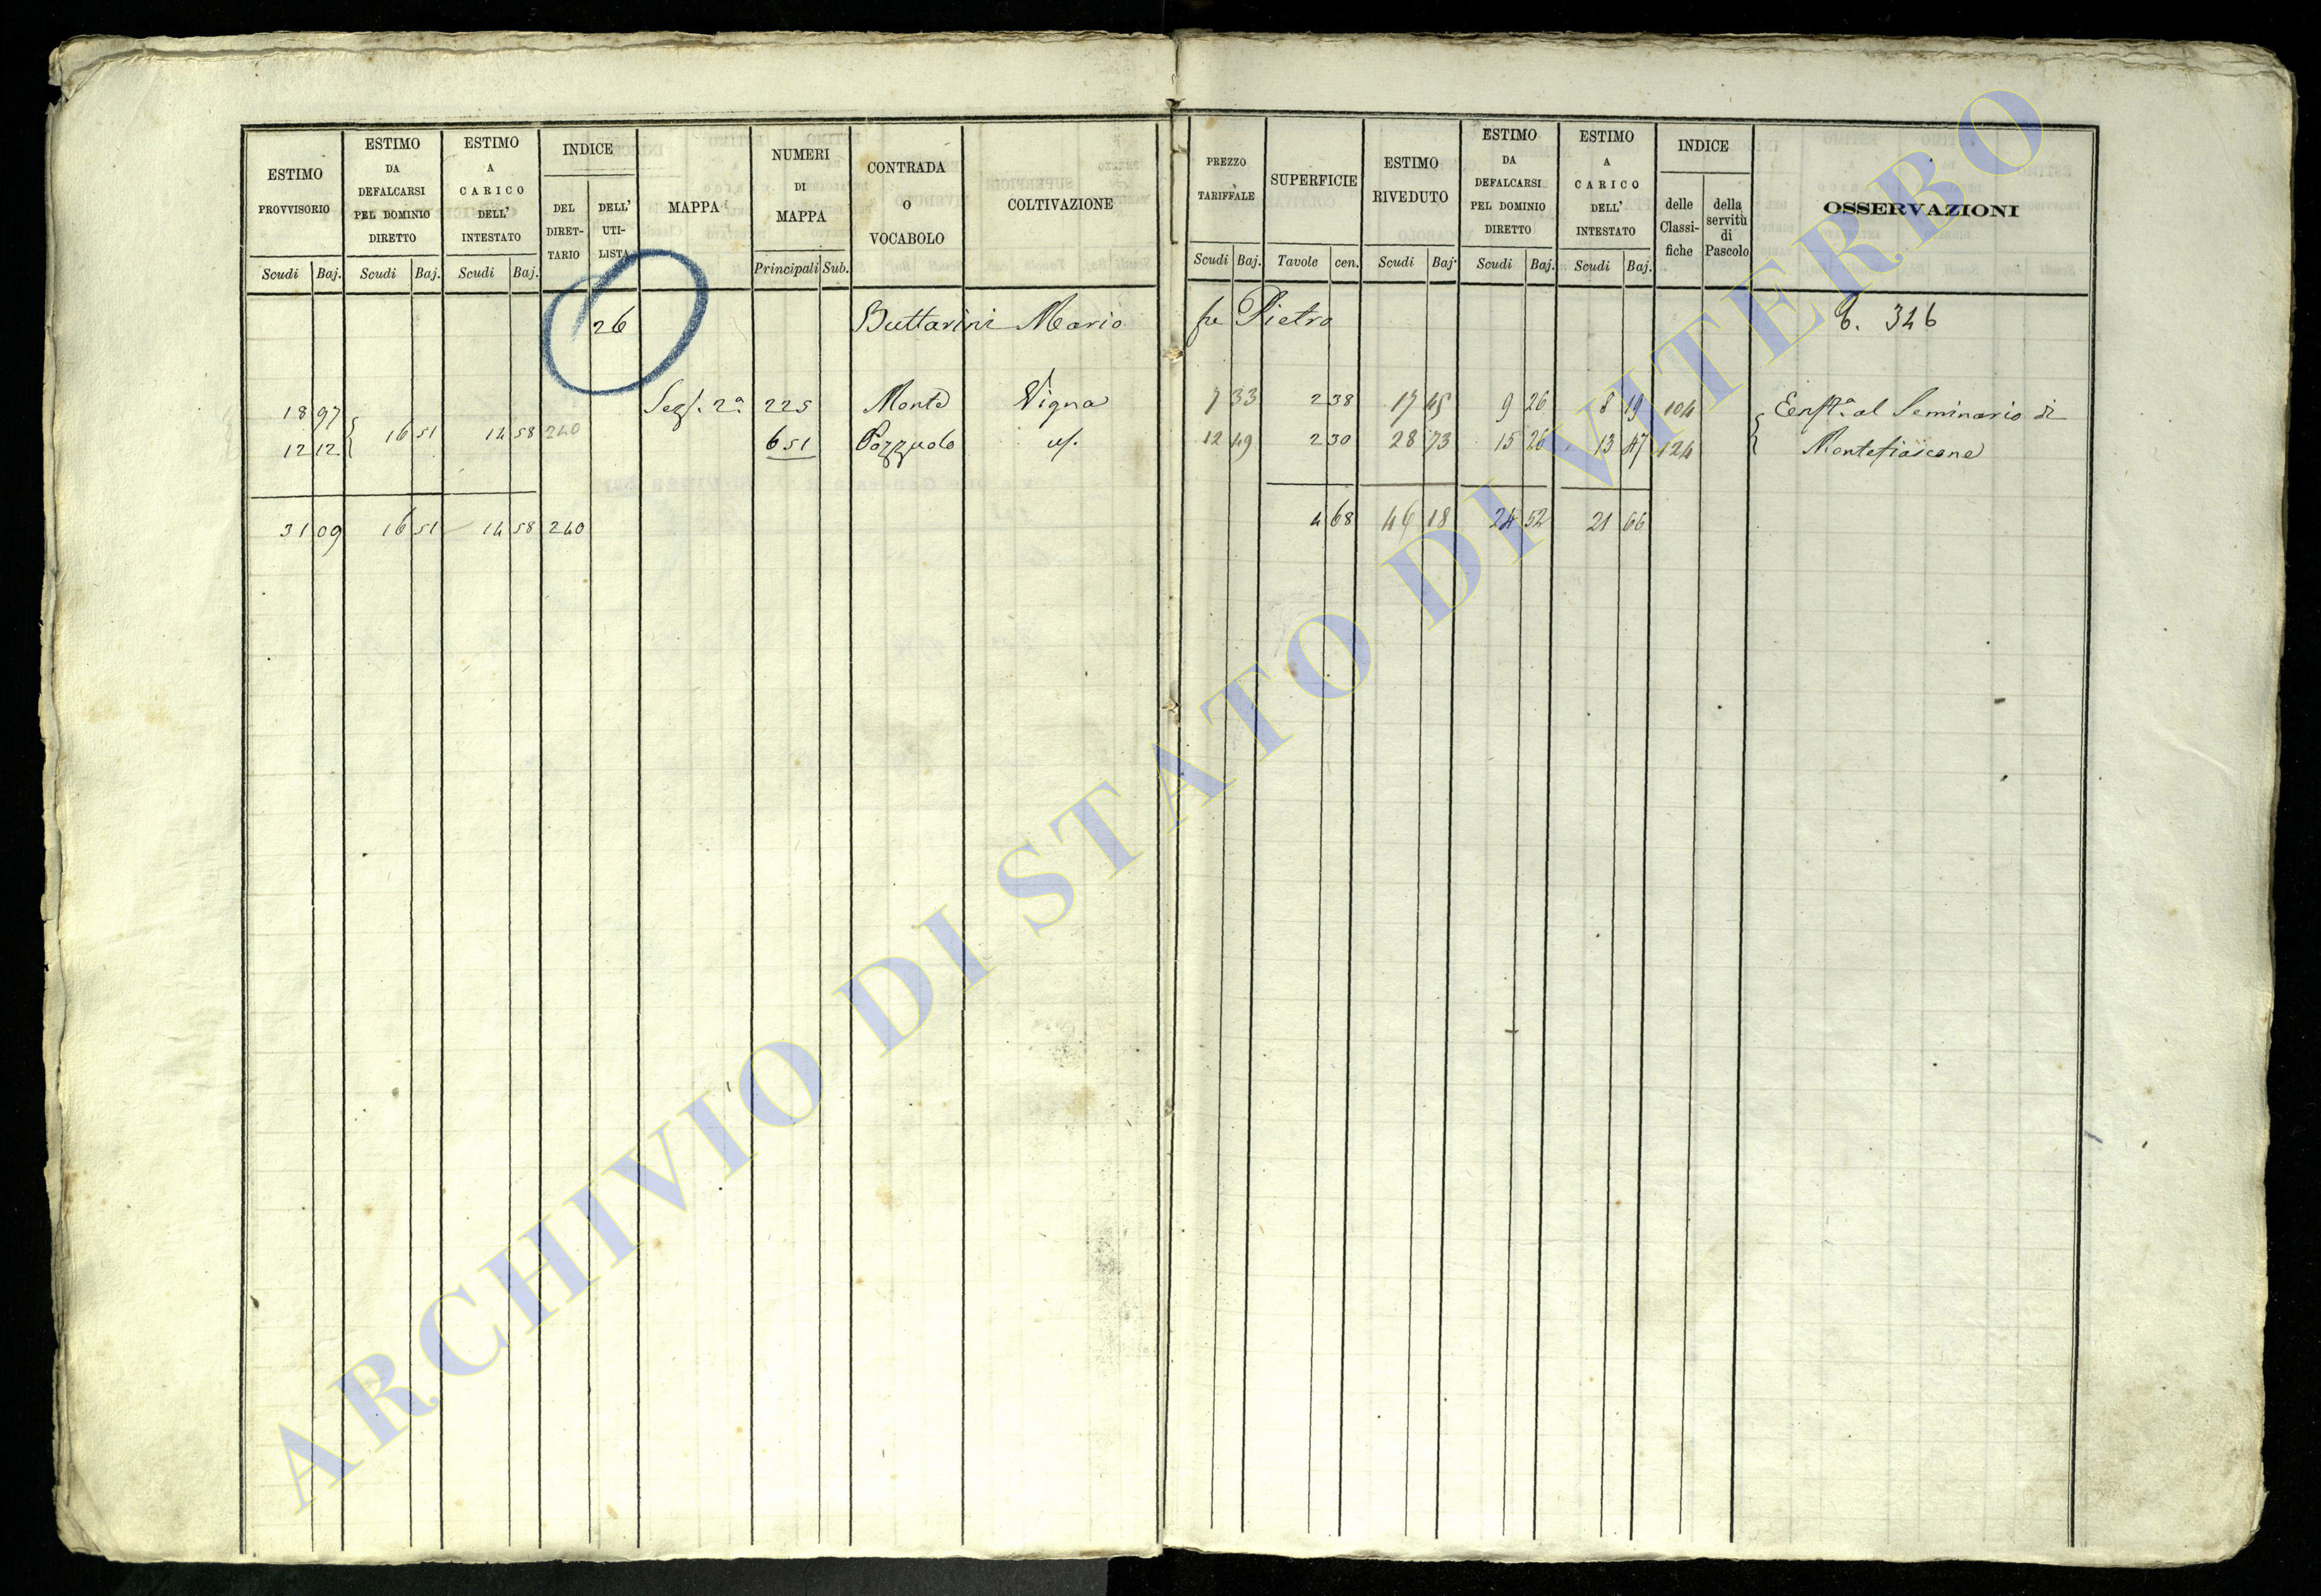 ESTIMO PROVVISORIO
Scudi Baj.
ESTIMO DA DEFALCARSI PEL DOMINIO DIRETTO
Scudi Baj.
ESTIMO A CARICO DELL' INTESTATO
Scudi Baj.
INDICE
DEL DIRET- TARIO
DELL' UTI- LISTA
MAPPA
NUMERI DI MAPPA
Principali Sub.
CONTRADA O VOCABOLO
COLTIVAZIONE
PREZZO TARIFFALE
Scudi Baj.
SUPERFICIE
Tavole cen.
ESTIMO RIVEDUTO
Scudi Baj.
ESTIMO DA DEFALCARSI PEL DOMINIO DIRETTO
Scudi Baj.
ESTIMO A CARICO DELL' INTESTATO
Scudi Baj.
INDICE
delle Classi- fiche
della servitù di Pascolo
OSSERVAZIONI
26 Buttarini Mario fu Pietro 6. 346
18 97 Sez. 2a 225 Monte Vigna 7 33 2 38 17 45 9 26 8 19 104 Enfta al Seminario di
16 51 14 58 240
12 12 651 Pozzuolo 12 49 2 30 28 73 15 26 13 47 124 Montefiascone
31 09 16 51 14 58 240 4 68 46 18 24 52 21 66
ARCHIVIO DI STATO DI VITERBO